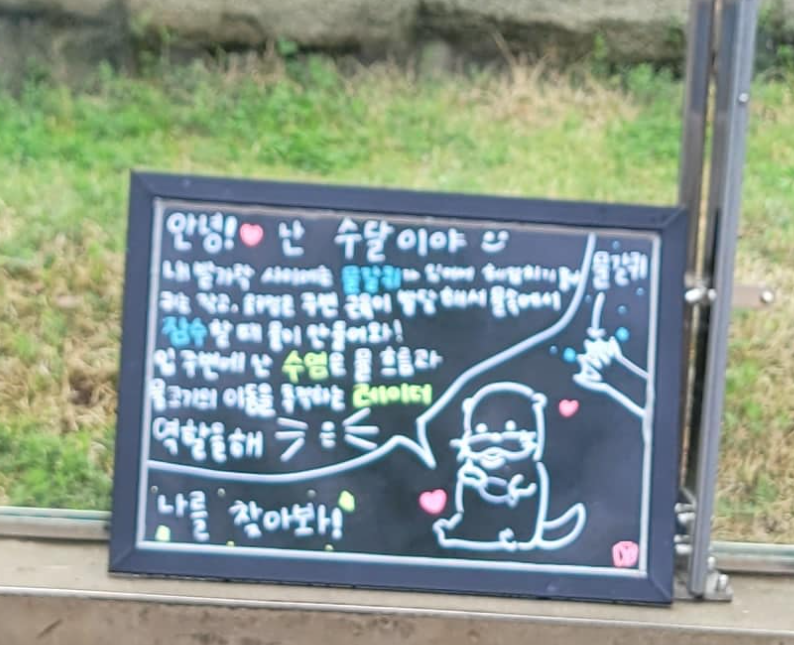 안녕! 난 수달이야
내 발가락 사이에는 물갈퀴가 있어서 헤엄치기
귀는 작고, 주변 근육이 발달해서 물속에서
잠수할 때 물이 안들어와!
입 주변에 난 수염은 물 흐름과
물고기의 이동을 감지하는 레이더
역할을 해
물갈퀴
나를 찾아봐!